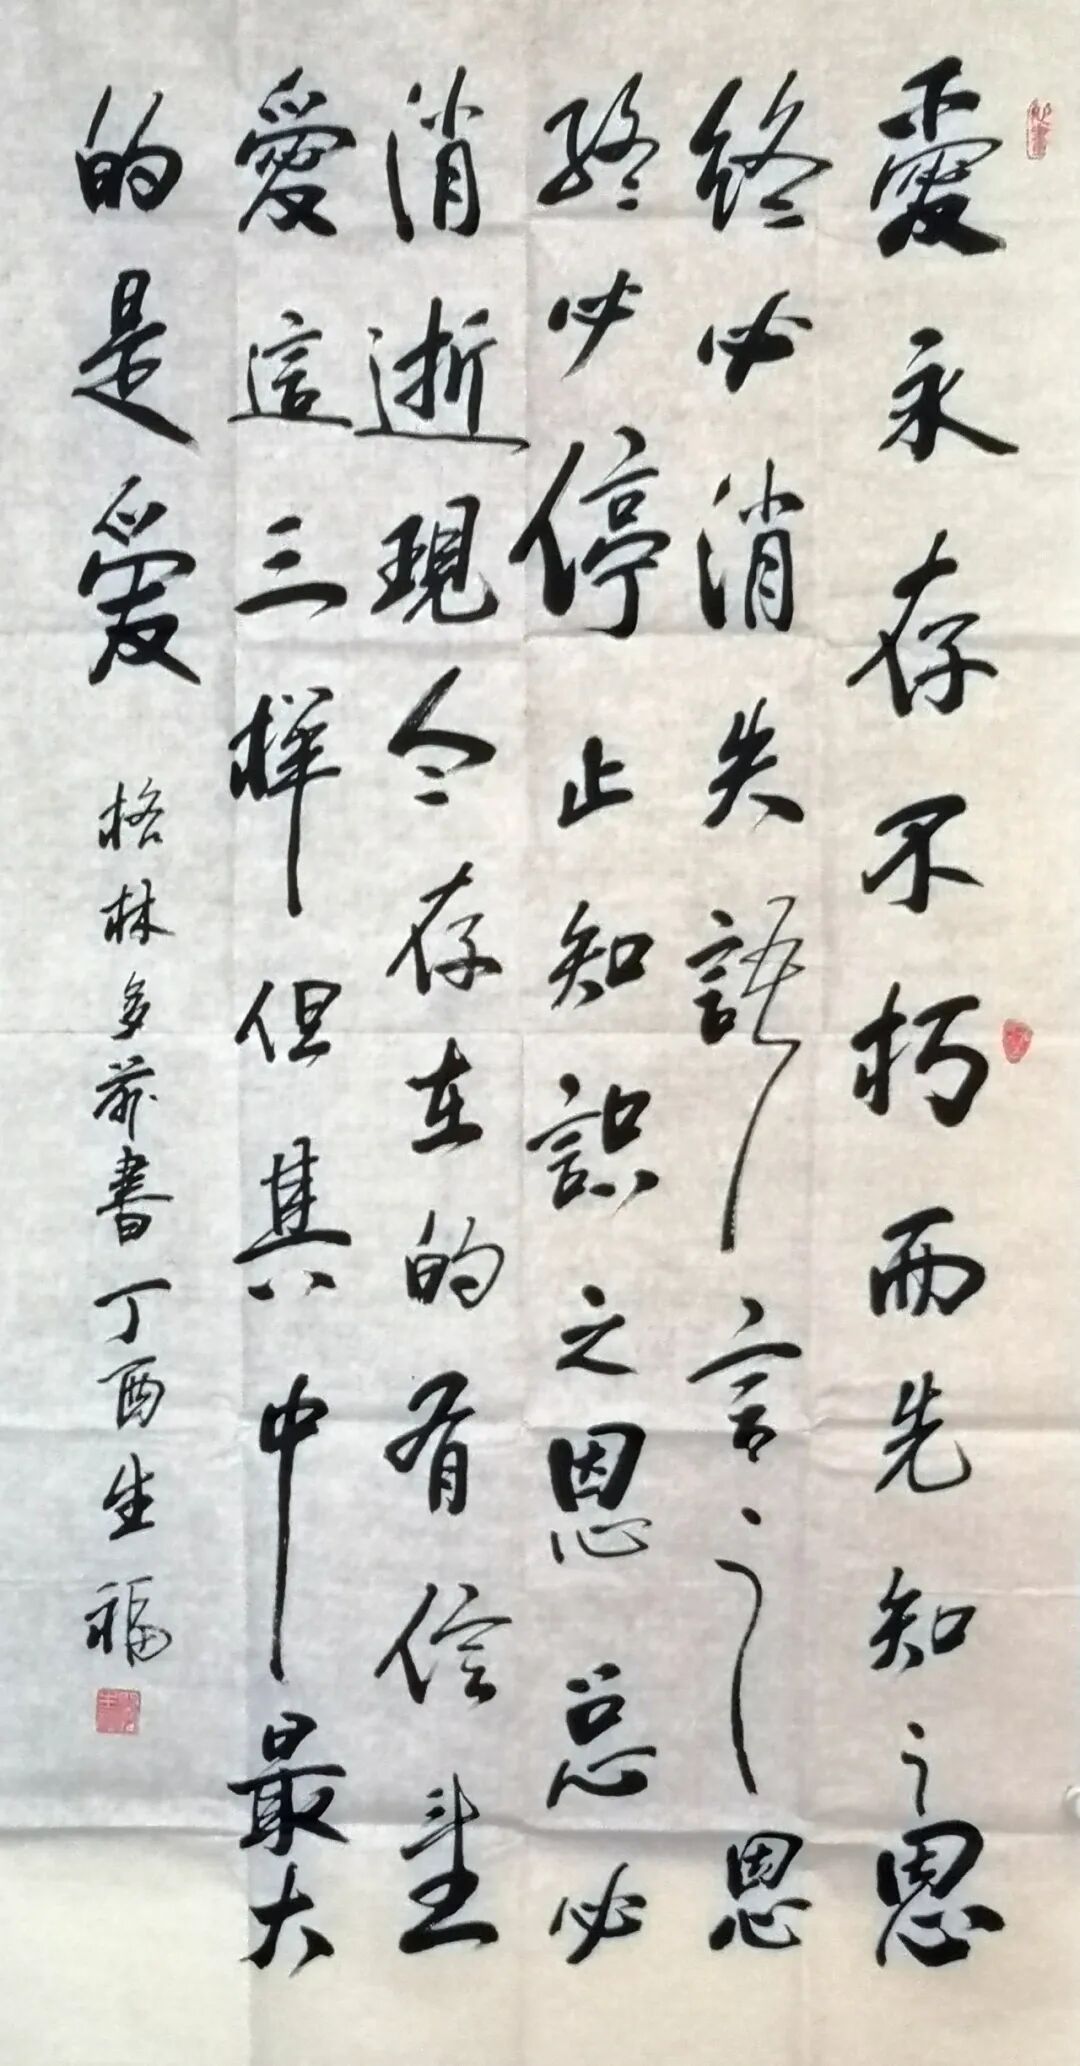 愛永存不朽而先知之恩
終必消失語言之恩
終必停止知識之恩总必
消逝現今存在的有信望
愛這三样但其中最大
的是愛
格林多前書丁酉生福